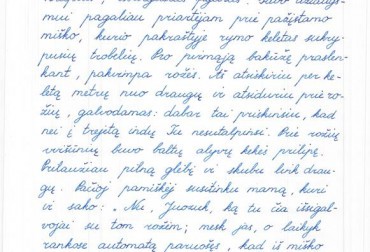 mui, pagaliau priartėjam prie pažįstamo
miško, kurio pakraštyje rymo keletas sukry-
pusių trobelių. Pro pirmąją bakūžę praslen-
kant, pakvimpa rožės. Aš atsiskiriu per ke-
letą metrų nuo draugų ir atsiduriu prie ro-
žių, galvodamas: dabar tai priskinsiu, kad
nei į trejetą indų Tu nesutalpinsi. Prie rožių
buvo baltų alyvų kekės prilipę.
Prilaužiau pilną glėbį ir skubu link drau-
gų. Pačioj pamiškėj susitinku mamą, kuri
vi sako: „Na, Juozuk, ką tu čia išsigal-
vojai su tom rožėm; mesk jas, o laikyk
rankose automatą paruošęs, kad iš miško